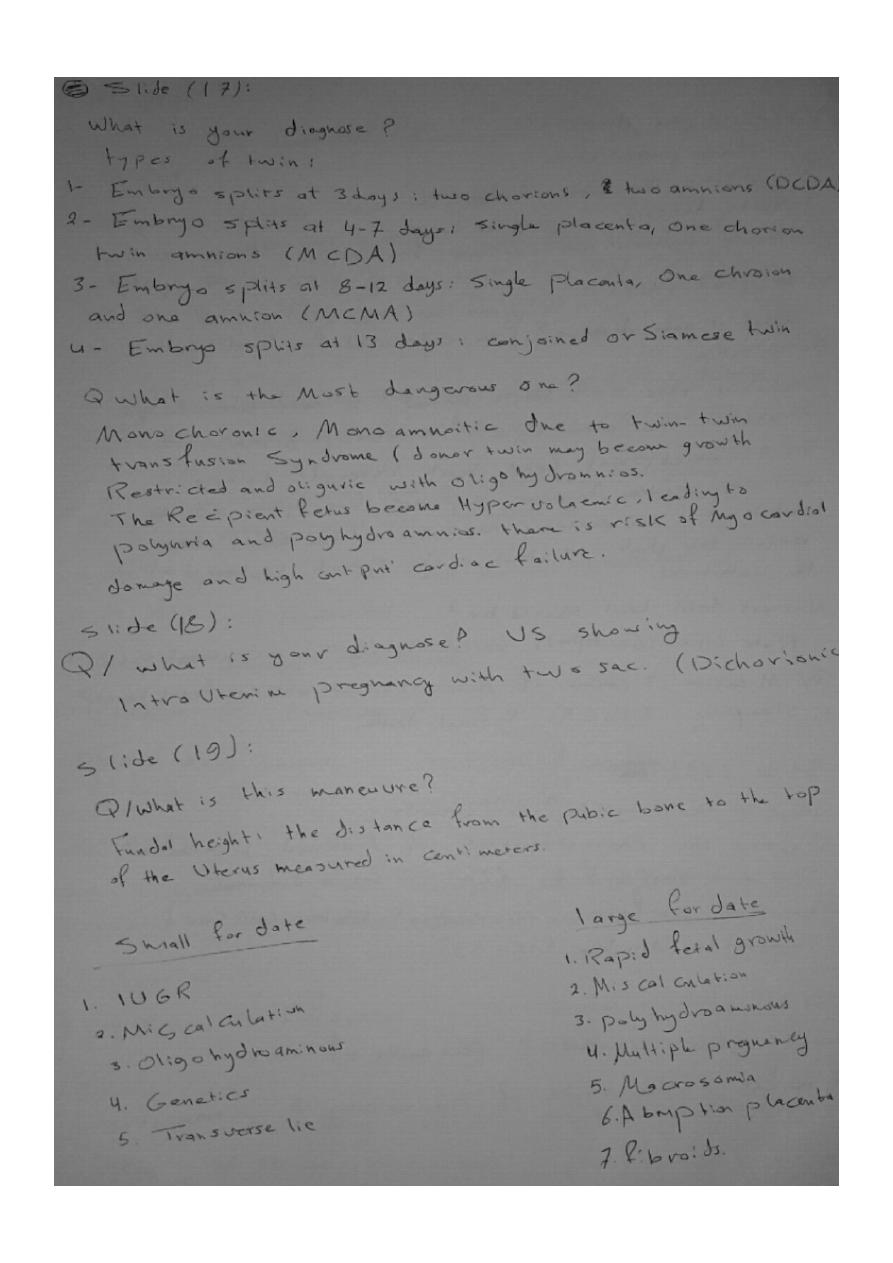 Slide (17):
What is your diagnose?
types of twin:
1- Embryo splits at 3 days: two chorions, two amnions (DCDA
2- Embryo splits at 4-7 days: single placenta, one chorion
twin amnions (MCDA)
3- Embryo splits at 8-12 days: Single placenta, One chroion
and one amnion (MCMA)
4- Embryo splits at 13 days: conjoined or Siamese twin
Q what is the Most dangerous one?
Mono choronic, Mono amnoitic due to twin-twin
transfusion Syndrome (donor twin may become growth
Restricted and oliguric with oligohydromnios.
The Recipient fetus become Hypervolaemic, leading to
polyuria and polyhydroamnios. there is risk of Myocardial
damage and high output cardiac failure.
Slide (18):
Q/ what is your diagnose? US showing
IntraUterine pregnancy with two sac. (Dichorionic
Slide (19):
Q/What is this maneuvre?
Fundal height: the distance from the pubic bone to the top
of the Uterus measured in centimeters.
Small for date
1. IUGR
2. Miscalculation
3. Oligohydroaminous
4. Genetics
5. Transverse lie
large for date
1. Rapid fetal growth
2. Miscalculation
3. polyhydroaminous
4. Multiple pregnancy
5. Macrosomia
6. Abruption placenta
7. fibroids.